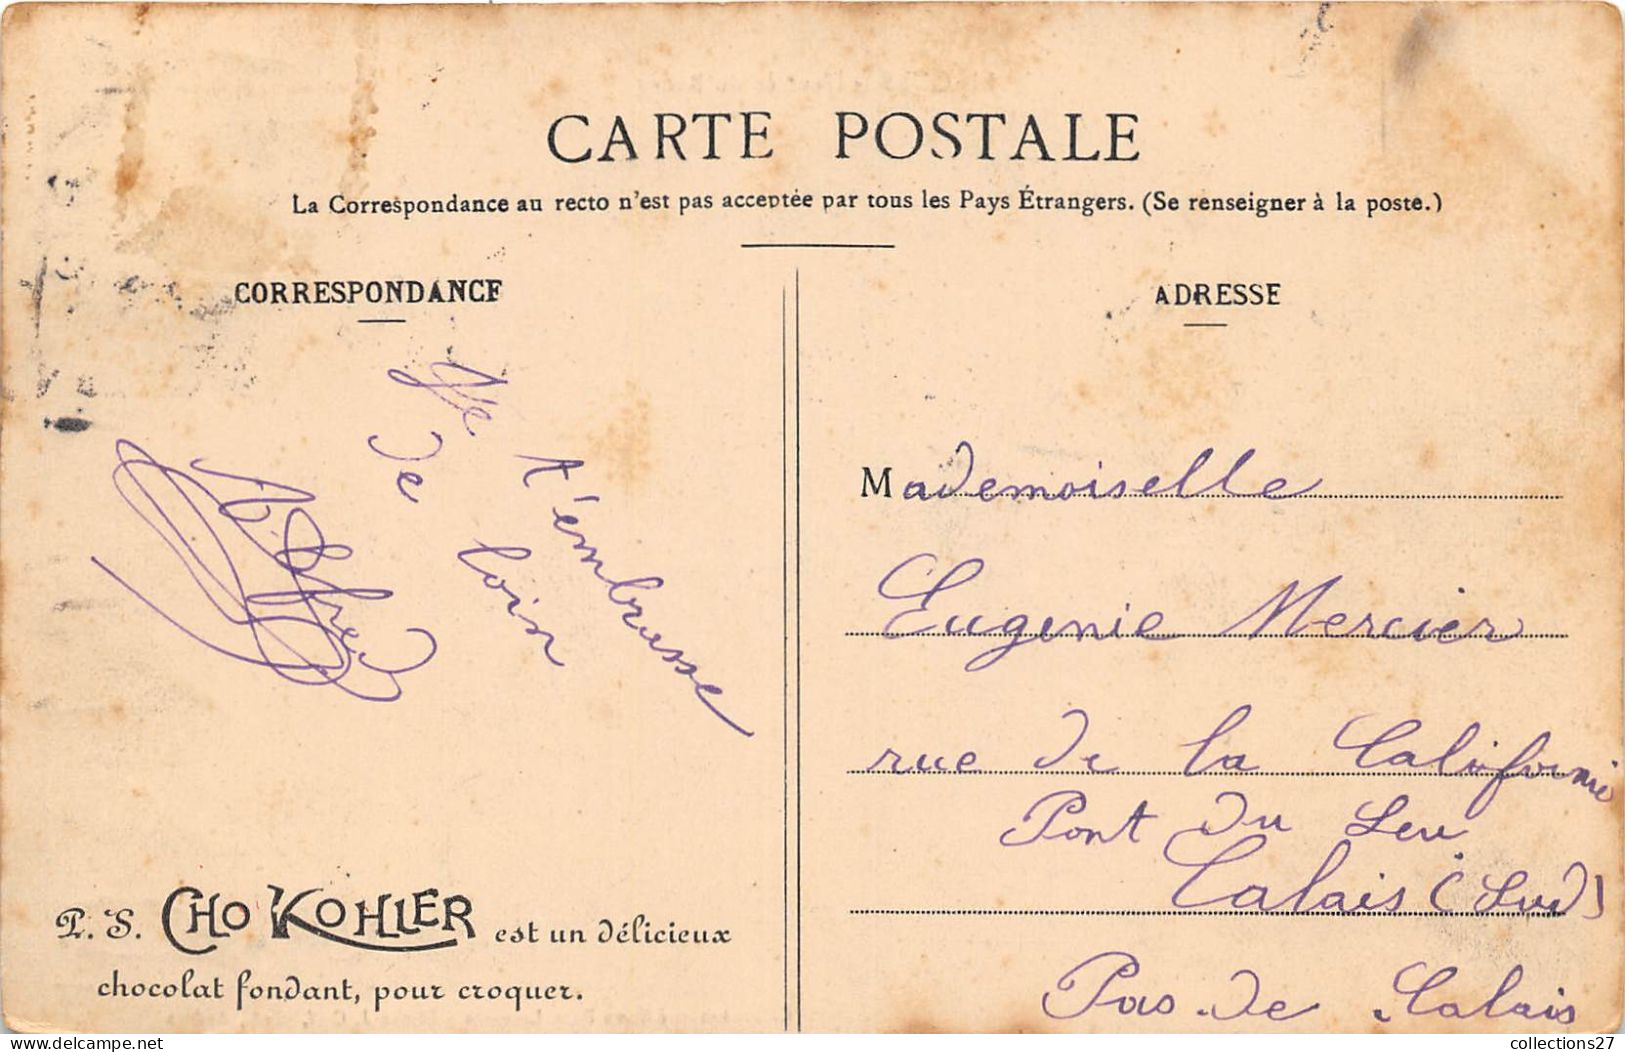 CARTE POSTALE
La Correspondance au recto n'est pas acceptée par tous les Pays Étrangers. (Se renseigner à la poste.)
CORRESPONDANCE
Je t'embrasse
de loin
Alfred
P. S. CHO KOHLER est un délicieux
chocolat fondant, pour croquer.
ADRESSE
Mademoiselle
Eugenie Mercier
rue de la Californie
Pont du Leu
Calais (Sud)
Pas-de-Calais
collections27